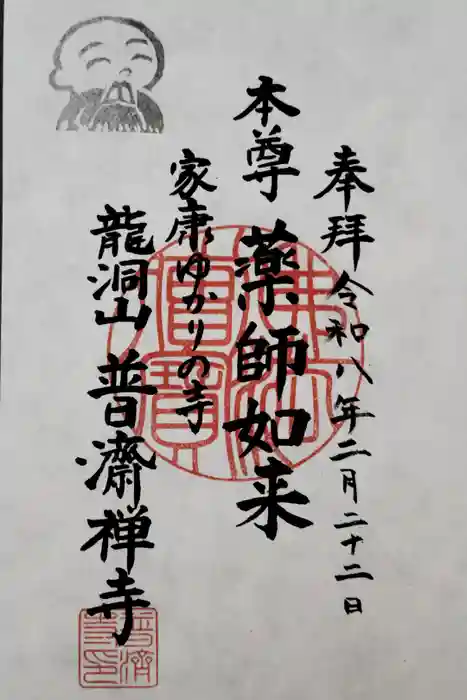 奉拝 令和八年二月二十二日
本尊 薬師如来
家康ゆかりの寺
龍洞山 普濟禅寺
佛法僧寶
普済寺印